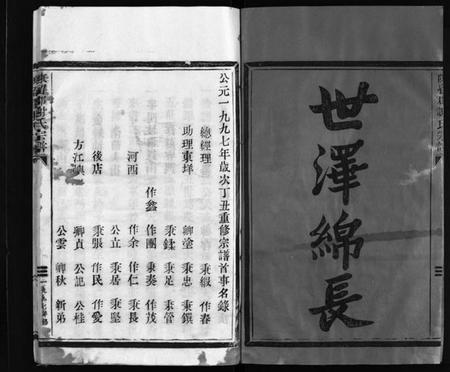 世澤綿長
公元一九九七年歲次丁丑重修宗譜首事名錄
總經理 秉緞 作春
助理東垟 卿塗 秉忠 秉鏆
秉鍒 秉足 秉管
作鎰 作團 秉奏 作茂
河西 作余 作仁 秉長
公立 秉居 秉堅
後店 秉張 作民 作愛
卿貞 公記 公桂
方江 公雲 卿秋 新弟